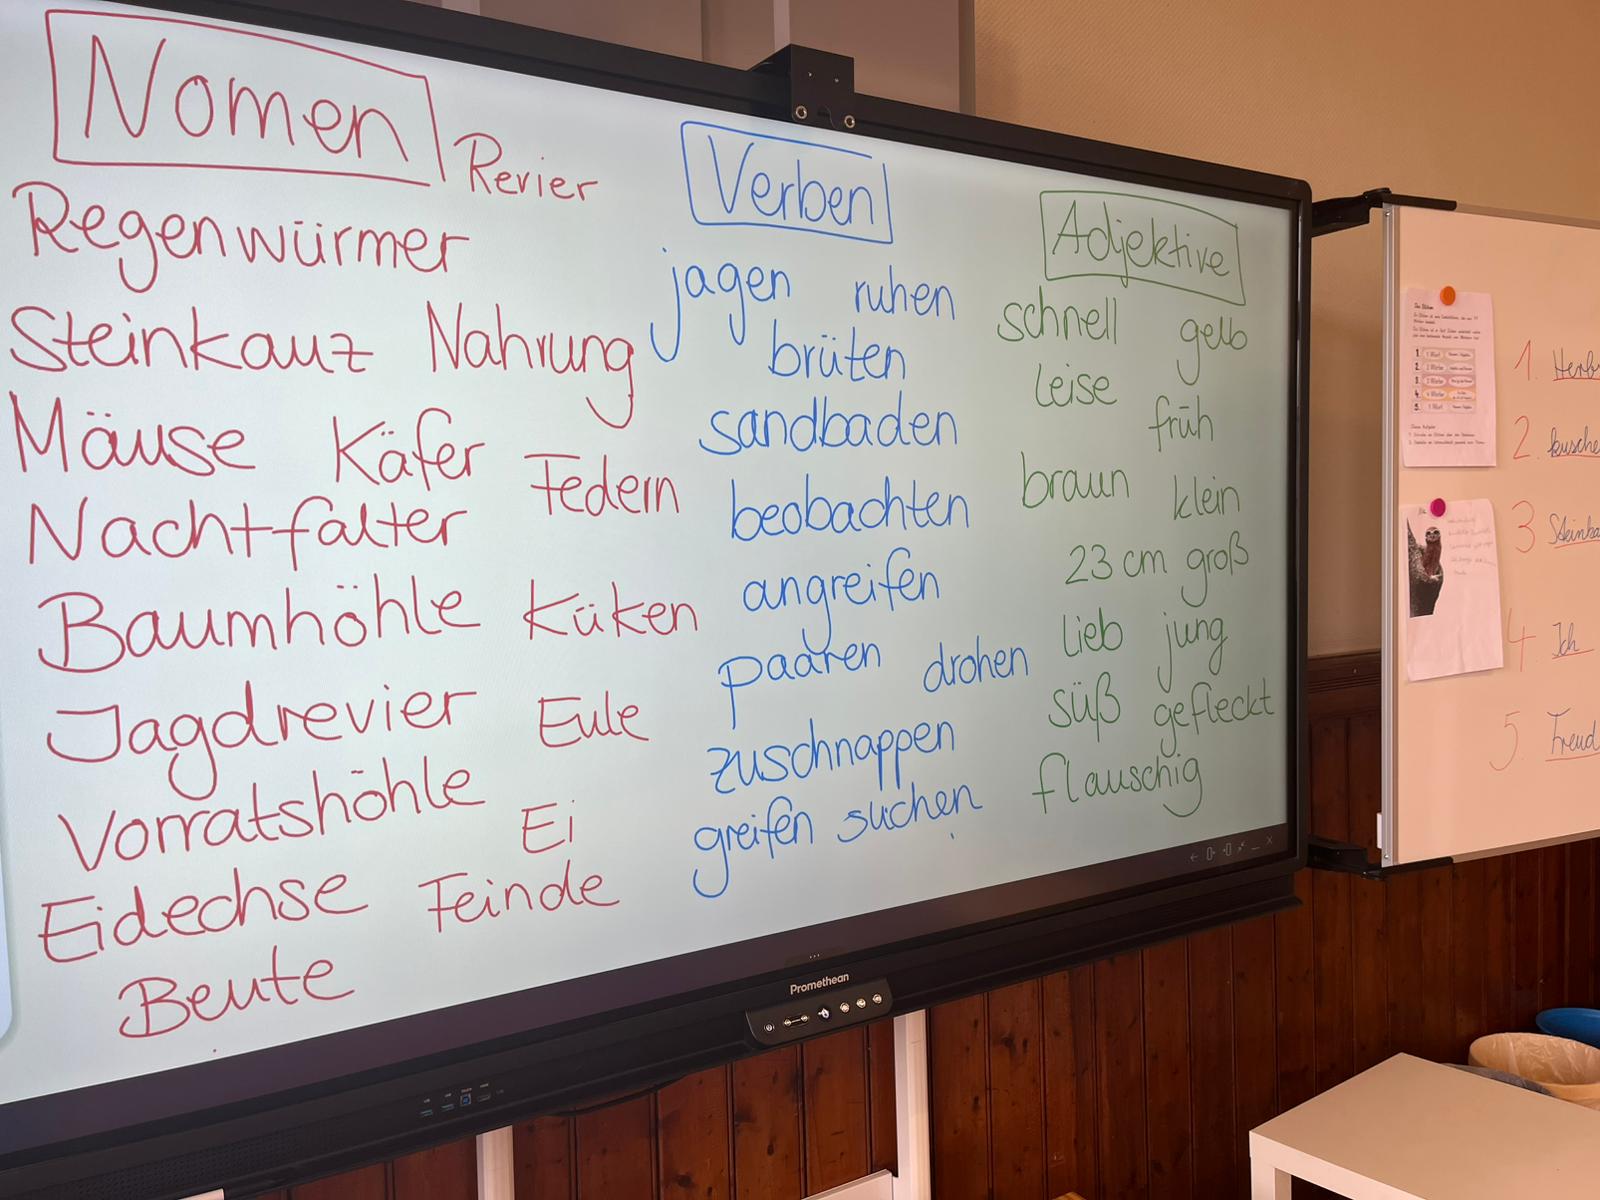 Nomen
Revier
Regenwürmer
Steinkauz Nahrung
Mäuse Käfer Federn
Nachtfalter
Baumhöhle Küken
Jagdrevier Eule
Vorratshöhle Ei
Eidechse Feinde
Beute
Verben
jagen ruhen
brüten
sandbaden
beobachten
angreifen
paaren drohen
zuschnappen
greifen suchen
Adjektive
schnell gelb
leise früh
braun klein
23 cm groß
lieb jung
süß gefleckt
flauschig
Promethean
1.
2.
3
4 Ich
5.